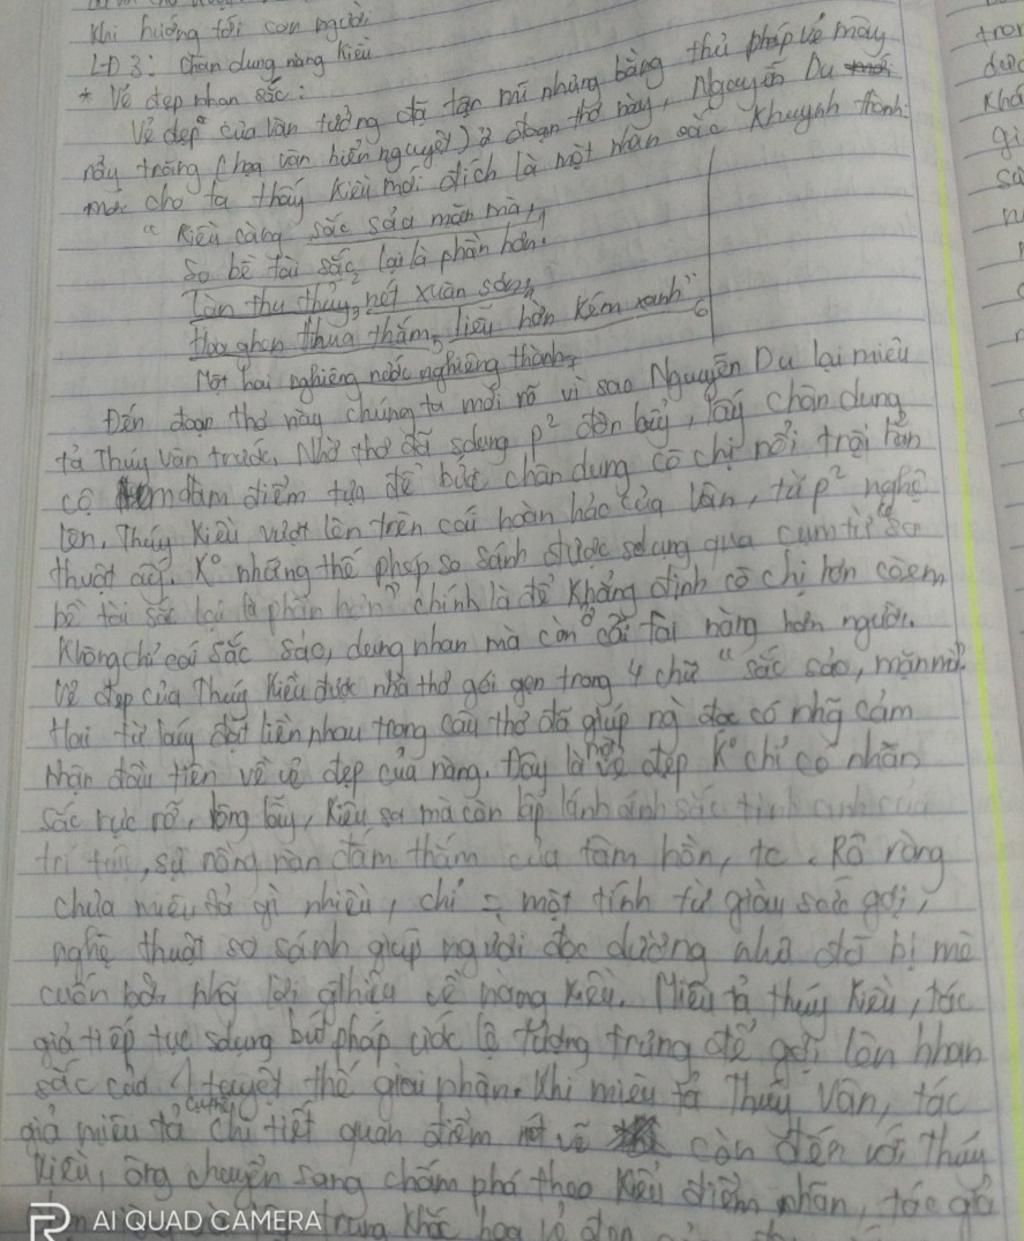 khi hướng tới con người
LĐ 3: Chân dung nàng Kiều
* Vẻ đẹp nhan sắc:
Vẻ đẹp của Vân tưởng đã tận mĩ nhưng bằng thủ pháp vẽ mây
nảy trăng (họa vân hiển nguyệt) ở đoạn thơ này, Nguyễn Du
cho ta thấy Kiều mới đích là một nhan sắc khuynh thành:
" Kiều càng sắc sảo mặn mà,1
So bề tài sắc2 lại là phần hơn.
Làn thu thủy,3 nét xuân sơn,4
Hoa ghen thua thắm,5 liễu hờn kém xanh" 6
Một hai nghiêng nước nghiêng thành,7
Đến đoạn thơ này chúng ta mới rõ vì sao Nguyễn Du lại miêu
tả Thúy Vân trước. Nhà thơ đã sdụng p² đòn bẩy, lấy chân dung
cô em làm điểm tựa để bức chân dung cô chị nổi trội hẳn
lên. Thúy Kiều vượt lên trên cái hoàn hảo của Vân, từ p² nghệ
thuật ấy. K° những thế phép so sánh được sdụng qua cụm từ "So
bề tài sắc lại là phần hơn" chính là để khẳng định cô chị hơn cô em
không chỉ cái sắc sảo, dung nhan mà còn ở cái tài nàng hơn người.
Vẻ đẹp của Thúy Kiều được nhà thơ gói gọn trong 4 chữ " sắc sảo, mặn mà"
Hai từ láy đặt liền nhau trong câu thơ đã giúp ng đọc có nhg cảm
nhận đầu tiên về vẻ đẹp của nàng. Đây là vẻ đẹp k° chỉ có nhan
sắc rực rỡ, lộng lẫy, kiêu sa mà còn lấp lánh ánh sắc tinh anh của
trí tuệ, sự nồng nàn đằm thắm của tâm hồn, tc. Rõ ràng
chưa miêu tả gì nhiều, chỉ = một tính từ giàu sức gợi,
nghệ thuật so sánh giúp người đọc dường như đã bị mê
cuốn bởi nhg lời gthiệu về nàng Kiều. Miêu tả Thúy Kiều, tác
giả tiếp tục sdụng bút pháp ước lệ tượng trưng để gợi lên nhan
sắc của 1 tuyệt thế giai nhân. Khi miêu tả Thúy Vân, tác
giả miêu tả cụ thể chi tiết quan điểm vẽ còn đến với Thúy
Kiều, ông chuyển sang chấm phá theo kiểu điểm nhãn, tác giả
AI QUAD CAMERA